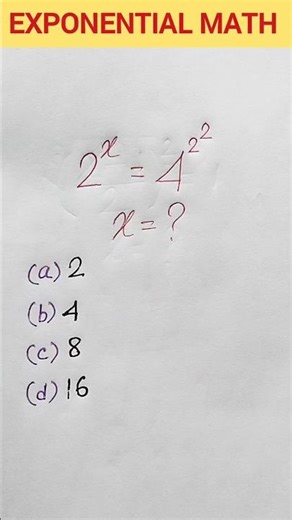 EXPONENTIAL MATH
2ˣ = 4^2^2
x = ?
(a) 2
(b) 4
(c) 8
(d) 16